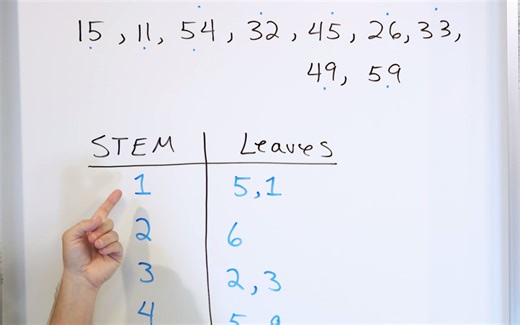 15, 11, 54, 32, 45, 26, 33,
49, 59
STEM Leaves
1 5, 1
2 6
3 2, 3
4 5, 9